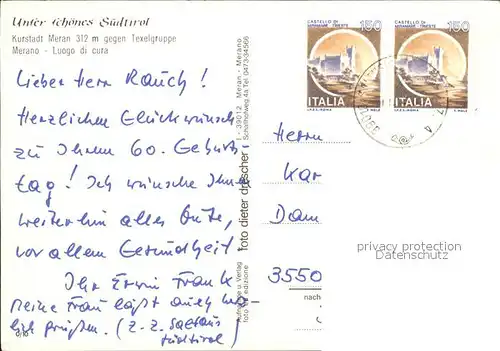 Unser schönes Südtirol
Kurstadt Meran 312 m gegen Texelgruppe
Merano - Luogo di cura
Lieber Herr Rauch!
Herzlichen Glückwunsch
zu Ihrem 60. Geburts-
tag! Ich wünsche Ihnen
weiterhin alles Gute,
vor allem Gesundheit
Ihr Erwin Frank
Meine Frau läßt auch herz-
lich grüßen. (z. Z.
Südtirol)
Aufnahme u. Verlag
foto ed edizione
foto dieter drescher
I - 39012 Meran - Merano
Schafferhofweg 4a Tel. 0473-34506
CASTELLO DI
MIRAMARE - TRIESTE
150
ITALIA
CASTELLO DI
MIRAMARE - TRIESTE
150
ITALIA
Herrn
Kar
Dam
3550
nach
privacy protection
Datenschutz